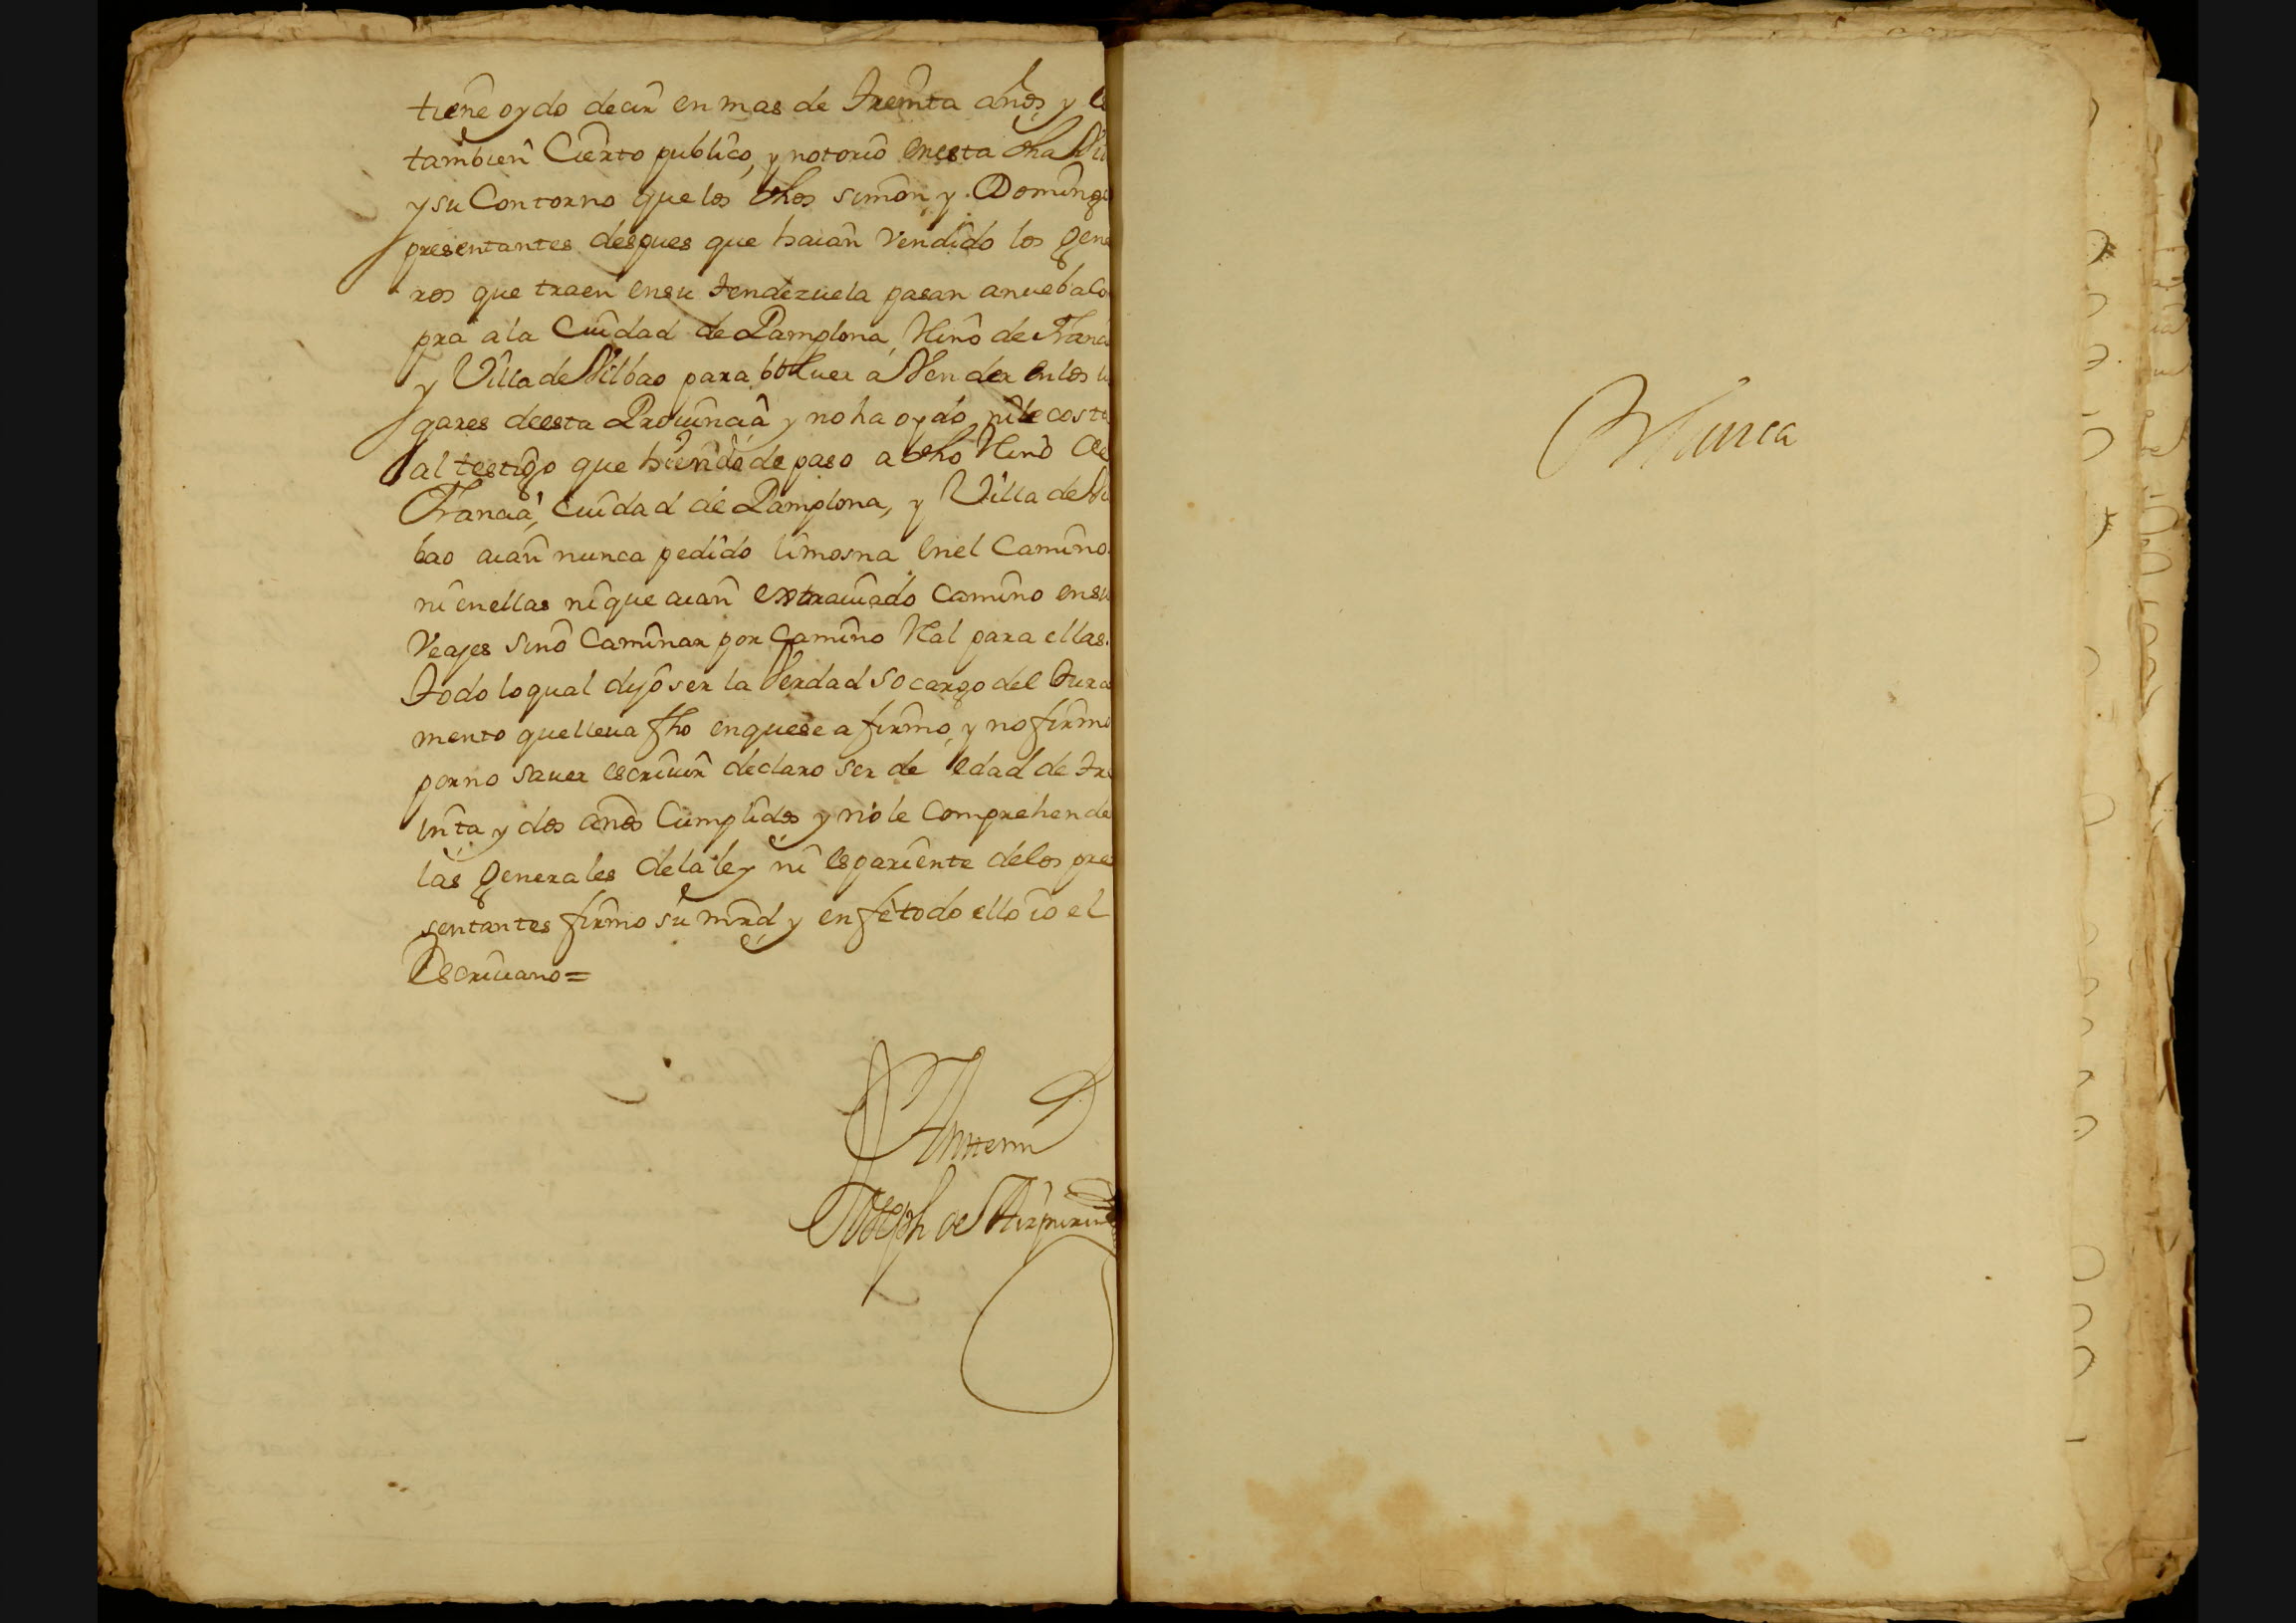 tiene oydo decir en mas de treinta años, y
tambien Cierto publico, y notorio en esta dha Vi
y su Contorno que los dhos simon, y Domingo
presentantes despues que haian vendido los gene
ros que traen en su tendezuela pasan a nueba co
pra a la Ciudad de Pamplona, Reino de Franci
y Villa de Vilbao para boluer a Vender en los lu
gares de esta Prouincia y no ha oydo, ni le costa
al testigo que hiendo de paso a dho Reino de
Francia, Ciudad de Pamplona, y Villa de Vil
bao aian nunca pedido limosna en el Camino
ni en ellas ni que aian extrauiado Camino en su
Veajes sino Caminar por Camino Ral para ellas.
Todo lo qual dijo ser la Verdad so cargo del Jura
mento que lleua fho en que se afirmo, y no firmo
por no sauer escriuir declaro ser de edad de tre
inta y dos años Cumplidos y no le Comprehende
las generales de la ley ni es pariente de los pre
sentantes firmo su mrd, y en fe todo ello io el
Escriuano=
Antemi
Joseph de